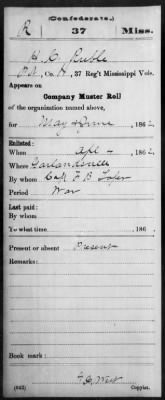 (Confederate.)
R 37 Miss.
H. C. Ruble
Pvt., Co. H, 37 Reg't Mississippi Vols.
Appears on
Company Muster Roll
of the organization named above,
for May & June, 1862.
Enlisted:
When Apl 4, 1862.
Where Garlandsville
By whom Capt F. B. Loper
Period War
Last paid:
By whom
To what time , 186 .
Present or absent Present
Remarks:
Book mark:
(642) Copyist.